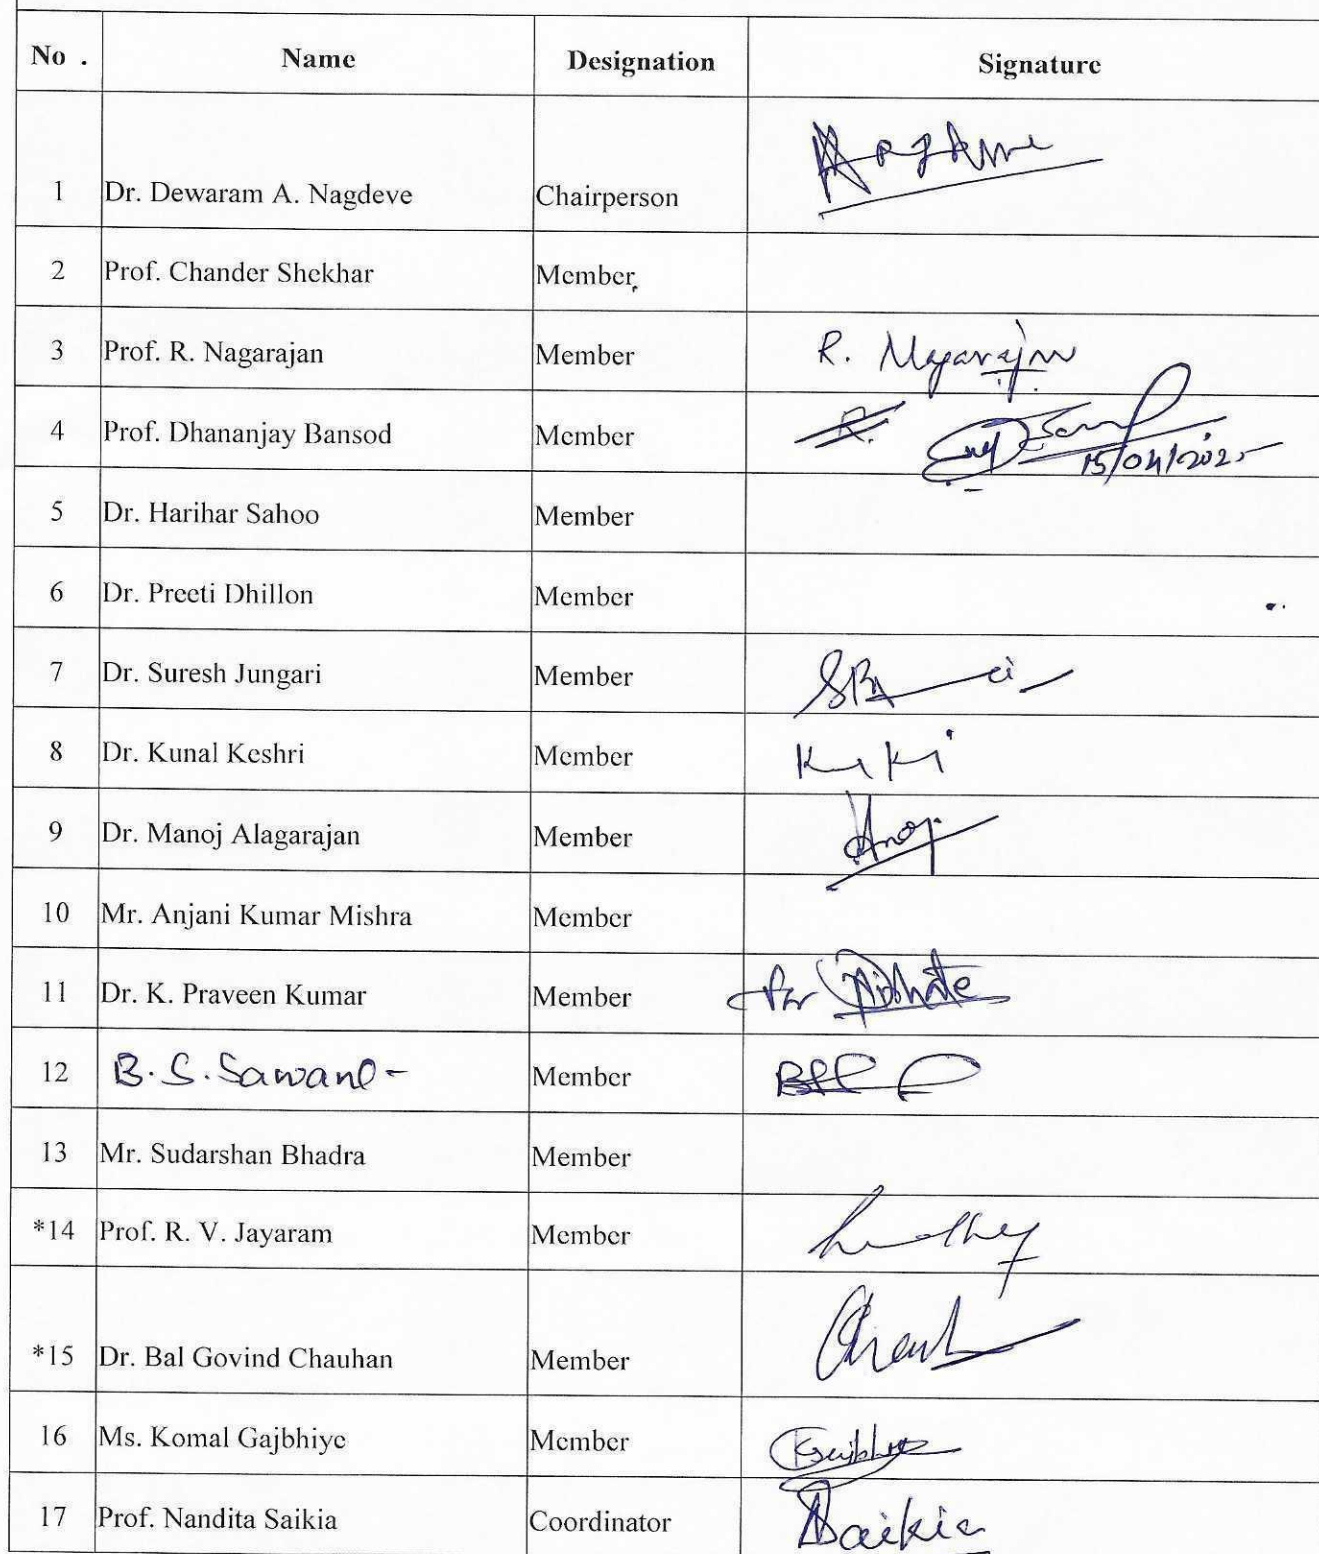 No . Name Designation Signature
1 Dr. Dewaram A. Nagdeve Chairperson
2 Prof. Chander Shekhar Member
3 Prof. R. Nagarajan Member R. Nagarajan
4 Prof. Dhananjay Bansod Member R. 15/04/2025
5 Dr. Harihar Sahoo Member
6 Dr. Preeti Dhillon Member
7 Dr. Suresh Jungari Member
8 Dr. Kunal Keshri Member
9 Dr. Manoj Alagarajan Member
10 Mr. Anjani Kumar Mishra Member
11 Dr. K. Praveen Kumar Member for
12 B.S. Sawant Member
13 Mr. Sudarshan Bhadra Member
*14 Prof. R. V. Jayaram Member
*15 Dr. Bal Govind Chauhan Member
16 Ms. Komal Gajbhiye Member
17 Prof. Nandita Saikia Coordinator Saikia